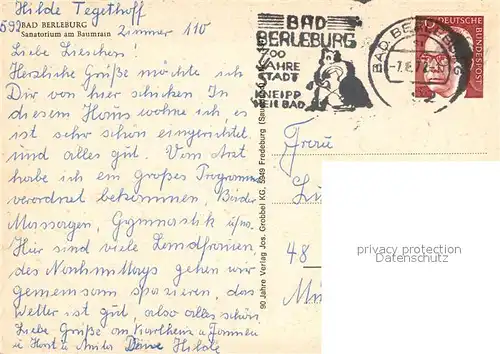 Hilde Tegethoff
59 BAD BERLEBURG
Sanatorium am Baumrain
Zimmer 110
Liebe Lieschen!
Herzliche Grüße möchte ich
Dir von hier schicken In
diesem Haus wohne ich, es
ist sehr schön eingerichtet
und alles gut. Vom Arzt
habe ich ein großes Programm
verordnet bekommen, Bäder
Massagen, Gymnastik u/sw.
Hier sind viele Landfrauen
des Nachmittags gehen wir
gemeinsam spazieren, das
Wetter ist gut, also alles schön
Liebe Grüße an Karlheinz u
u Horst u Deine Hilde
90 Jahre Verlag Jos. Grobbel KG, 5949 Fredeburg
BAD
BERLEBURG
700
JAHRE
STADT
KNEIPP
HEILBAD
BAD BERLEBURG
DEUTSCHE
BUNDESPOST
Frau
48
privacy protection
Datenschutz